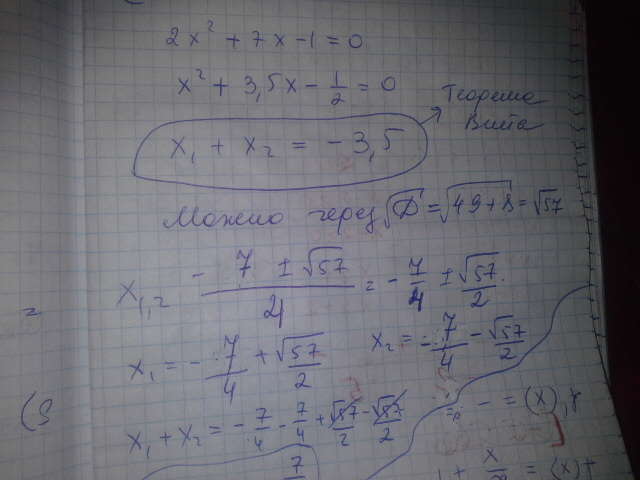 2x² + 7x - 1 = 0
x² + 3,5x - 1/2 = 0
x₁ + x₂ = - 3,5
Теорема
Виета
Можно через √D = √49+8 = √57
x₁,₂ = - 7 ± √57 / 4 = - 7/4 ± √57/2
x₁ = - 7/4 + √57/2 x₂ = - 7/4 - √57/2
x₁ + x₂ = - 7/4 - 7/4 + √57/2 - √57/2
7